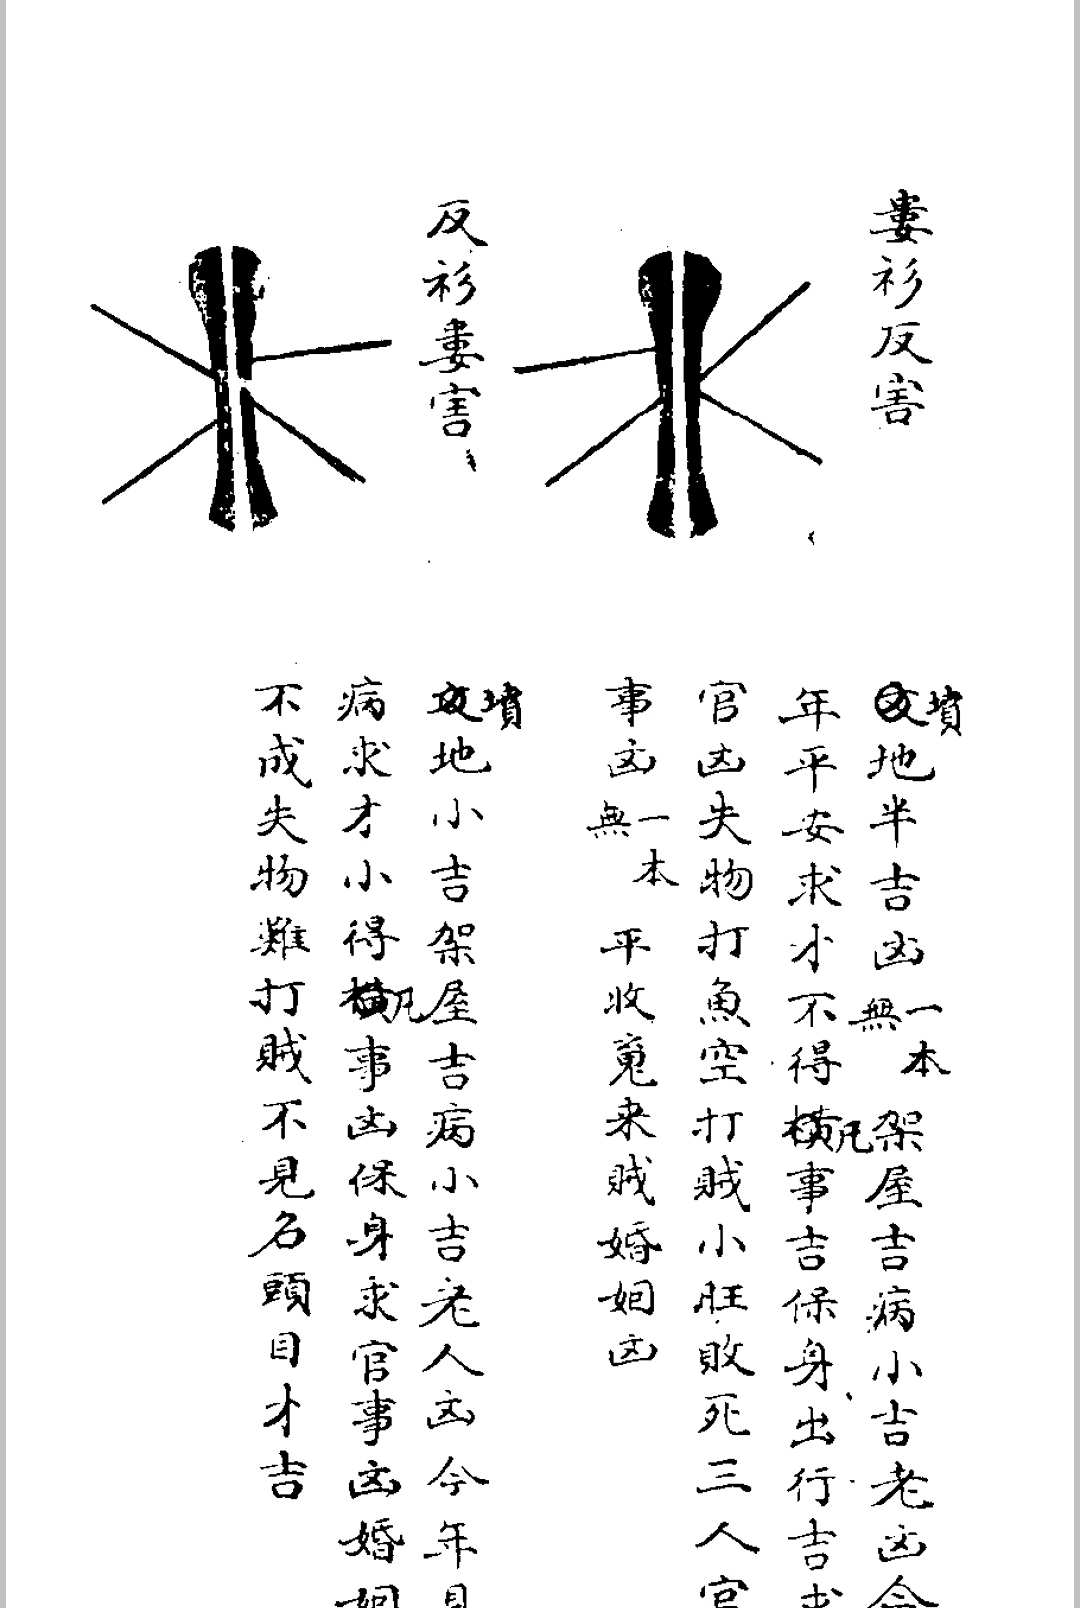 婁衫反害
墳
地半吉凶一本無架屋吉病小吉老凶今
年平安求才不得橫凡事吉保身出行吉求
官凶失物打魚空打賊小旺敗死三人官
事凶一本無平收寬来賊婚姻凶
反衫婁害
墳
地小吉架屋吉病小吉老人凶今年見
病求才小得橫凡事凶保身求官事凶婚姻
不成失物難打賊不見名頭目才吉